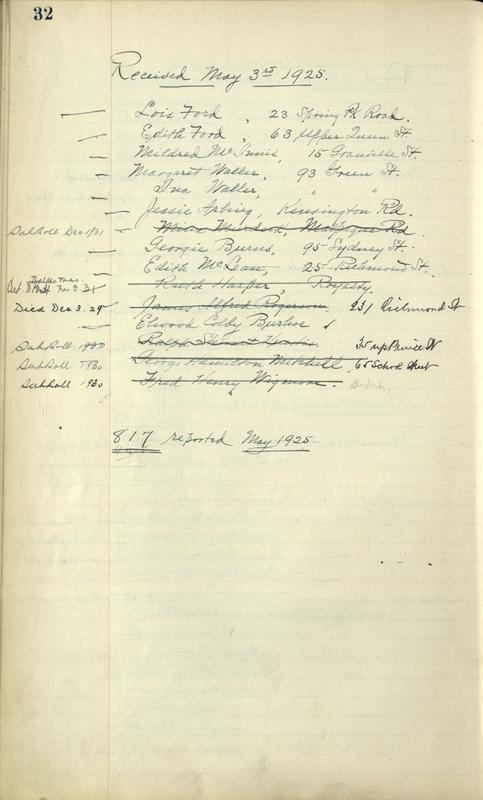 32
Received May 3rd 1925.
Lois Ford, 23 Spring Pk Road.
Edith Ford, 63 Upper Queen St.
Mildred McInnis, 15 Granville St.
Margaret Waller, 93 Green St.
Ina Waller, " "
Jessie Arbing, Kensington Rd.
Sub Roll Dec 1931 Minnie Murdock, Rd
Georgie Burns, 95 Sydney St.
Edith McLean, 25 Richmond St.
Ruth Harper, Royalty.
Died Dec 3. 29 James Alfred Rogerson. 231 Richmond St
Elwood Colby Burhoe
Sub Roll 1930 Ralph Stewart 35 up Prince St
Sub Roll 1930 George Hamilton Mitchell, 65 School Street
Sub Roll 1930 Fred Henry Wigmore.
817 reported May 1925.